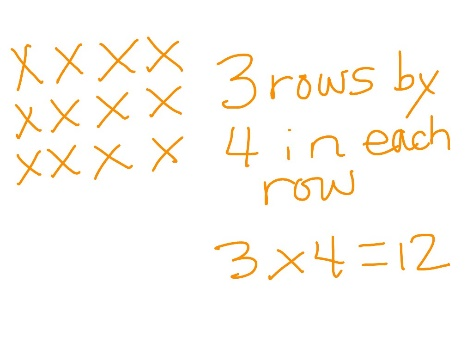 X X X X
X X X X
X X X X
3 rows by
4 in each
row
3 x 4 = 12